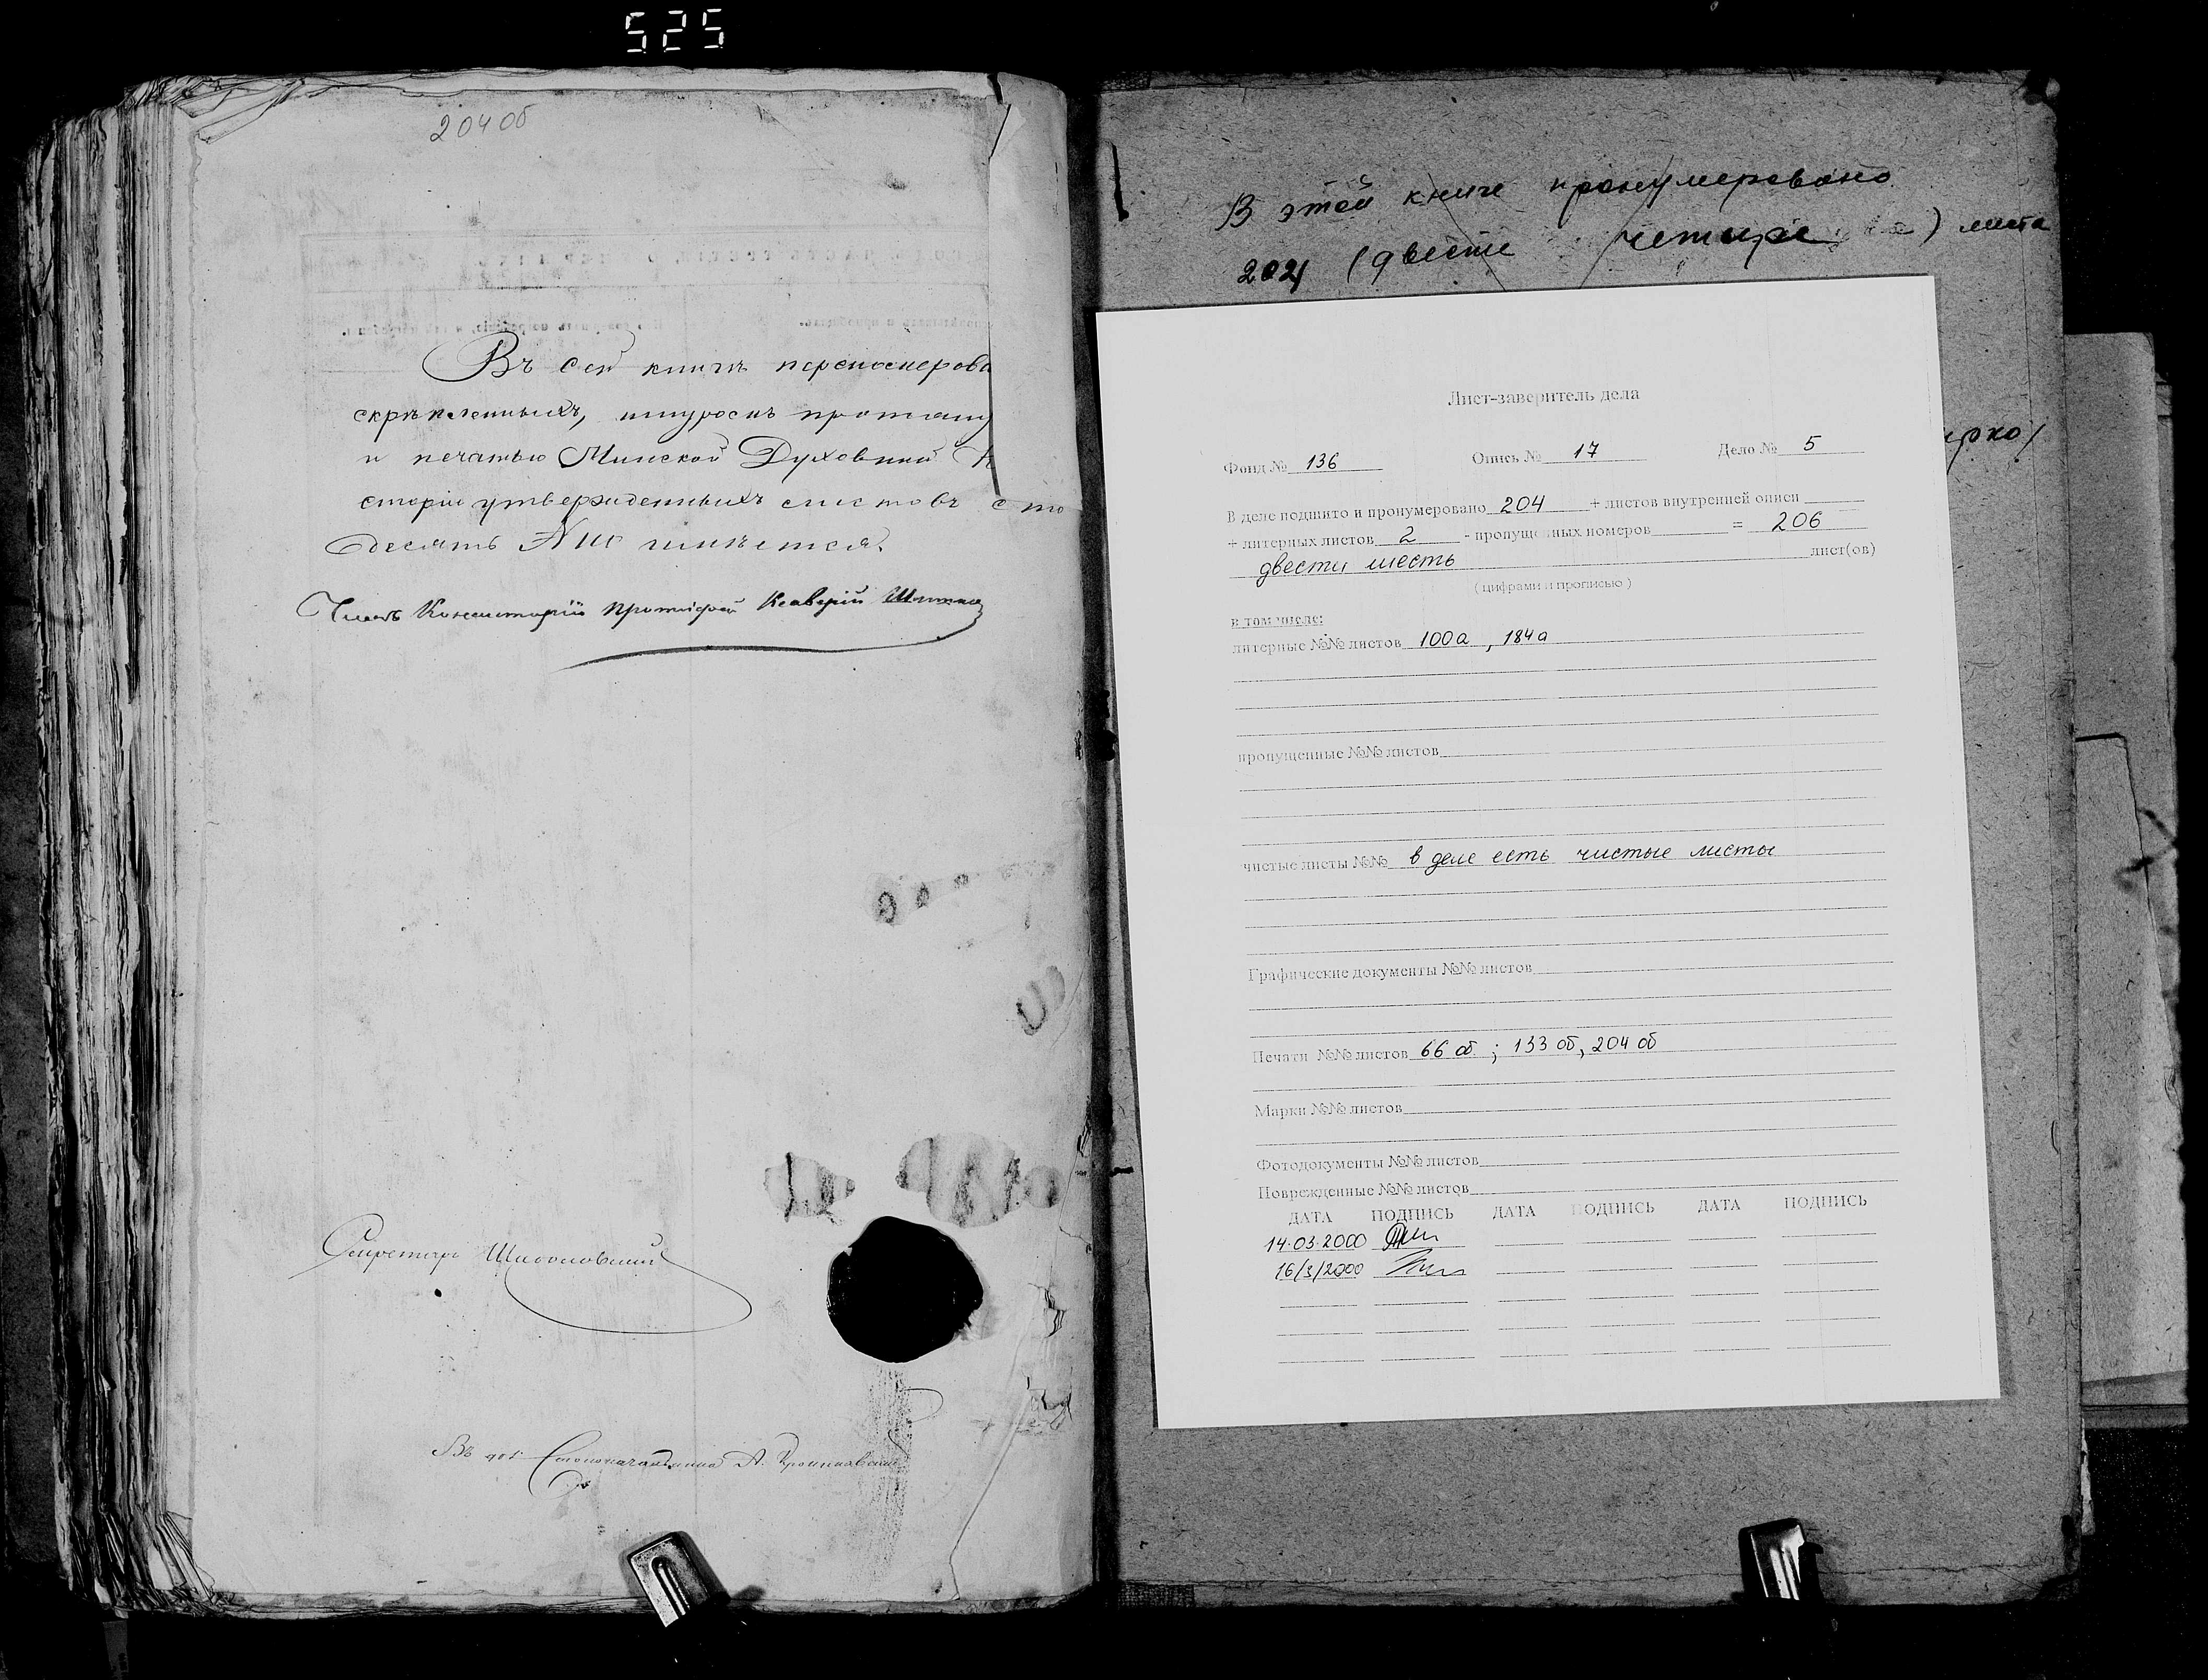 525
204 об
Въ сей книгѣ перенумерова
скрѣпленныхъ, шнуромъ протяну
и печатью Минской Духовной К
систоріи утвержденныхъ листовъ сто
десять № 110 имѣется.
Членъ Консисторіи Протоіерей Ксаверій
Секретарь
Столоначальника А.
В этой книге пронумеровано
204 (двести четыре) листа
Лист-заверитель дела
Фонд № 136 Опись № 17 Дело № 5
В деле подшито и пронумеровано 204 + листов внутренней описи
+ литерных листов 2 - пропущенных номеров = 206
двести шесть лист(ов)
( цифрами и прописью )
в том числе:
литерные №№ листов 100а , 184а
пропущенные №№ листов
чистые листы №№ в деле есть чистые листы
Графические документы №№ листов
Печати №№ листов 66 об. ; 133 об, 204 об
Марки №№ листов
Фотодокументы №№ листов
Поврежденные №№ листов
ДАТА ПОДПИСЬ ДАТА ПОДПИСЬ ДАТА ПОДПИСЬ
14.03.2000
16/3/2000